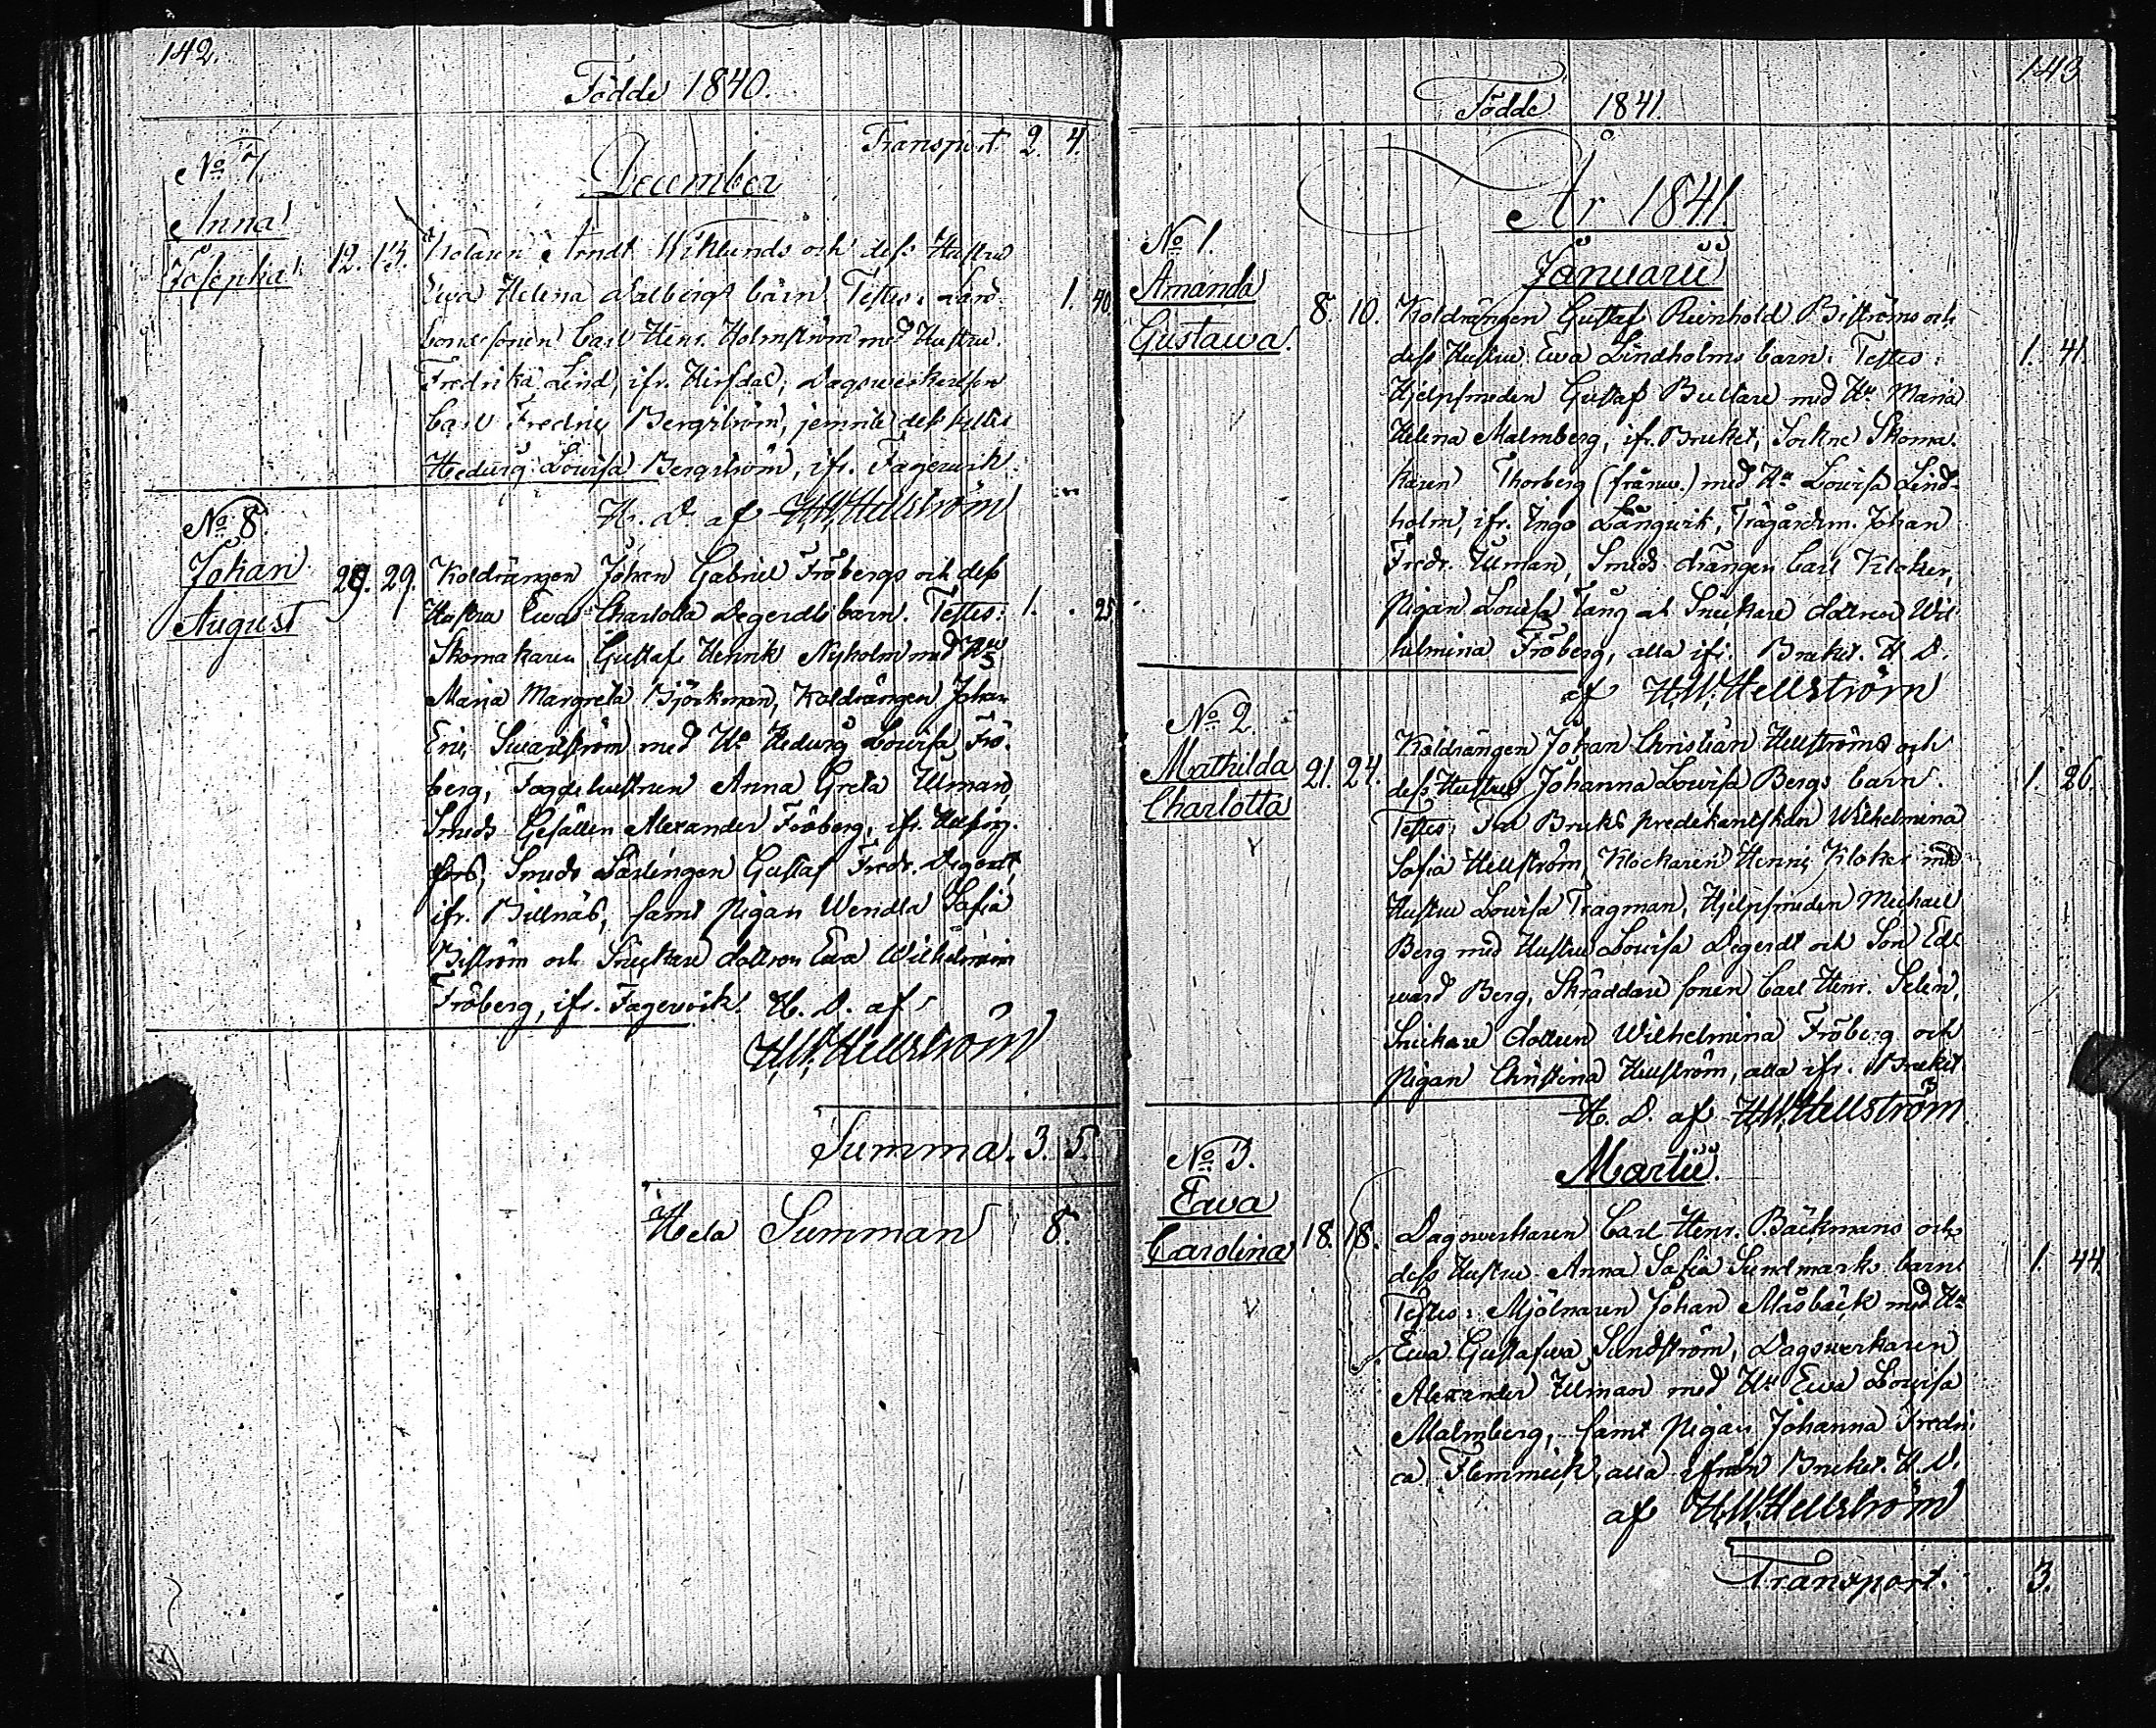 142.
Födde 1840.
Transport 2. 4.
No 7.
December
Anna
Josepha
12. 13. Kolaren Arndt Wiklunds och dess Hustru
Ewa Helena Dalbergs barn. Testes: Land- 1. 40
bondesonen Carl Henr. Holmström med Hustru
Fredrika Lind, ifr. Hirsdal, Dagswerkaresson
Carl Fredric Bergström, jemnte
Hedwig Lowisa Bergström, ifr. Fagerwik.
H. D. af H.W. Hellström
No 8.
Johan
August
29. 29. Koldrängen Johan Gabriel Fröbergs och dess
Hustru Ewa Charlotta Degerdts barn. Testes: 1. 25
Skomakaren Gustaf Henrik Nyholm med Hu
Maria Margreta Björkman, Koldrängen Johan
Eric Swanström med Hu Hedwig Lowisa Frö-
berg, Fogdehustrun Anna Greta Ulman
Smeds Gesällen Alexander Fröberg, ifr. Helsing-
fors, Smeds Lärlingen Gustaf Fredr. Degerdt,
ifr. Billnäs, samt Pigan Wendla Sofia
Biström och Snickare dottren Ewa Wilhelmina
Fröberg, ifr. Fagerwik. H. D. af
H.W. Hellström
Summa. 3. 5.
Hela Summan 8.
143
Födde 1841.
År 1841.
Januarii
No 1.
Amanda
Gustawa.
8. 10. Koldrängen Gustaf Reinhold Biströms och
dess Hustru Ewa Lindholms barn. Testes: 1. 41.
Hjelpsmeden Gustaf Bultare med Hu Maria
Helena Malmberg, ifr. Bruket, Sockne Skoma-
karen Thorberg (frånw.) med Hu Lowisa Lind-
holm, ifr. Ingo Långwik, Trägårdsm. Johan
Fredr. Ulman, Smeds drängen Carl Kloker,
Pigan Lowisa Tång ok Snickare dottren Wil-
helmina Fröberg, alla ifr. Bruket. H. D.
af H.W. Hellström
No 2.
Mathilda
Charlotta
21. 24. Koldrängen Johan Christian Hellströms och
dess Hustru Johanna Lowisa Bergs barn. 1. 26.
Testes: Fru Bruks predikantskan Wilhelmina
Sofia Hellström, Klockaren Henric Kloker med
Hustru Lowisa Tragman, Hjelpsmeden Michael
Berg med Hustru Lowisa Degerdt och Son Ed-
ward Berg, Skräddare sonen Carl Henr. Selin,
Snickare dottren Wilhelmina Fröberg och
Pigan Christina Hellström, alla ifr. Bruket.
H. D. af H.W. Hellström
No 3.
Martii.
Ewa
Carolina
18. 18. Dagswerkaren Carl Henr. Bäckmans och
dess Hustru Anna Sofia Sundmarks barn 1. 44.
Testes: Mjölnaren Johan Måsbäck med Hu
Ewa Gustafwa Sundström, Dagswerkaren
Alexander Ulman med Hu Ewa Lowisa
Malmberg, samt Pigan Johanna Fredri-
ca Flemmich, alla ifrån Bruket. H. D.
af H.W. Hellström
Transport. 3.